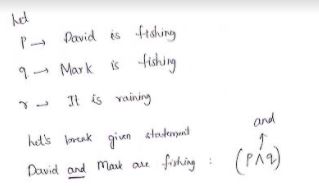 Let
p → David is fishing
q → Mark is fishing
r → It is raining
Let's break given statement
and
↑
David and Mark are fishing : (p∧q)